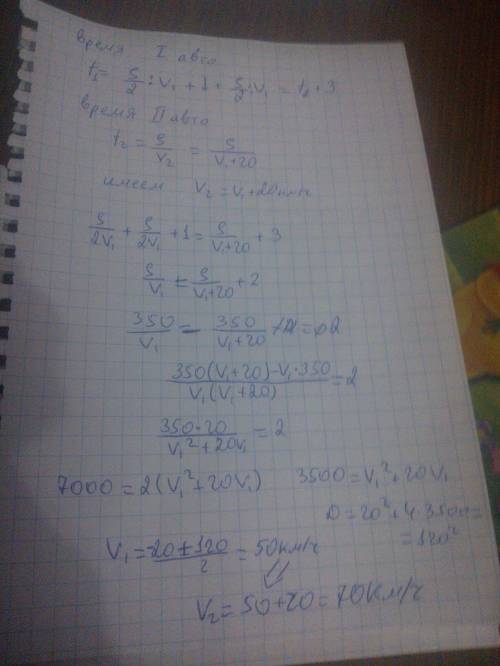 время I авто
t₁ = S/2 : V₁ + 1 + S/2 : V₁ = t₂ + 3
время II авто
t₂ = S/V₂ = S/(V₁+20)
имеем V₂ = V₁ + 20км/ч
S/2V₁ + S/2V₁ + 1 = S/(V₁+20) + 3
S/V₁ = S/(V₁+20) + 2
350/V₁ - 350/(V₁+20) = 2
(350(V₁+20) - V₁·350)/(V₁(V₁+20)) = 2
350·20/(V₁²+20V₁) = 2
7000 = 2(V₁²+20V₁) 3500 = V₁²+20V₁
D = 20²+4·3500 =
= 120²
V₁ = (-20+120)/2 = 50км/ч
V₂ = 50+20 = 70км/ч